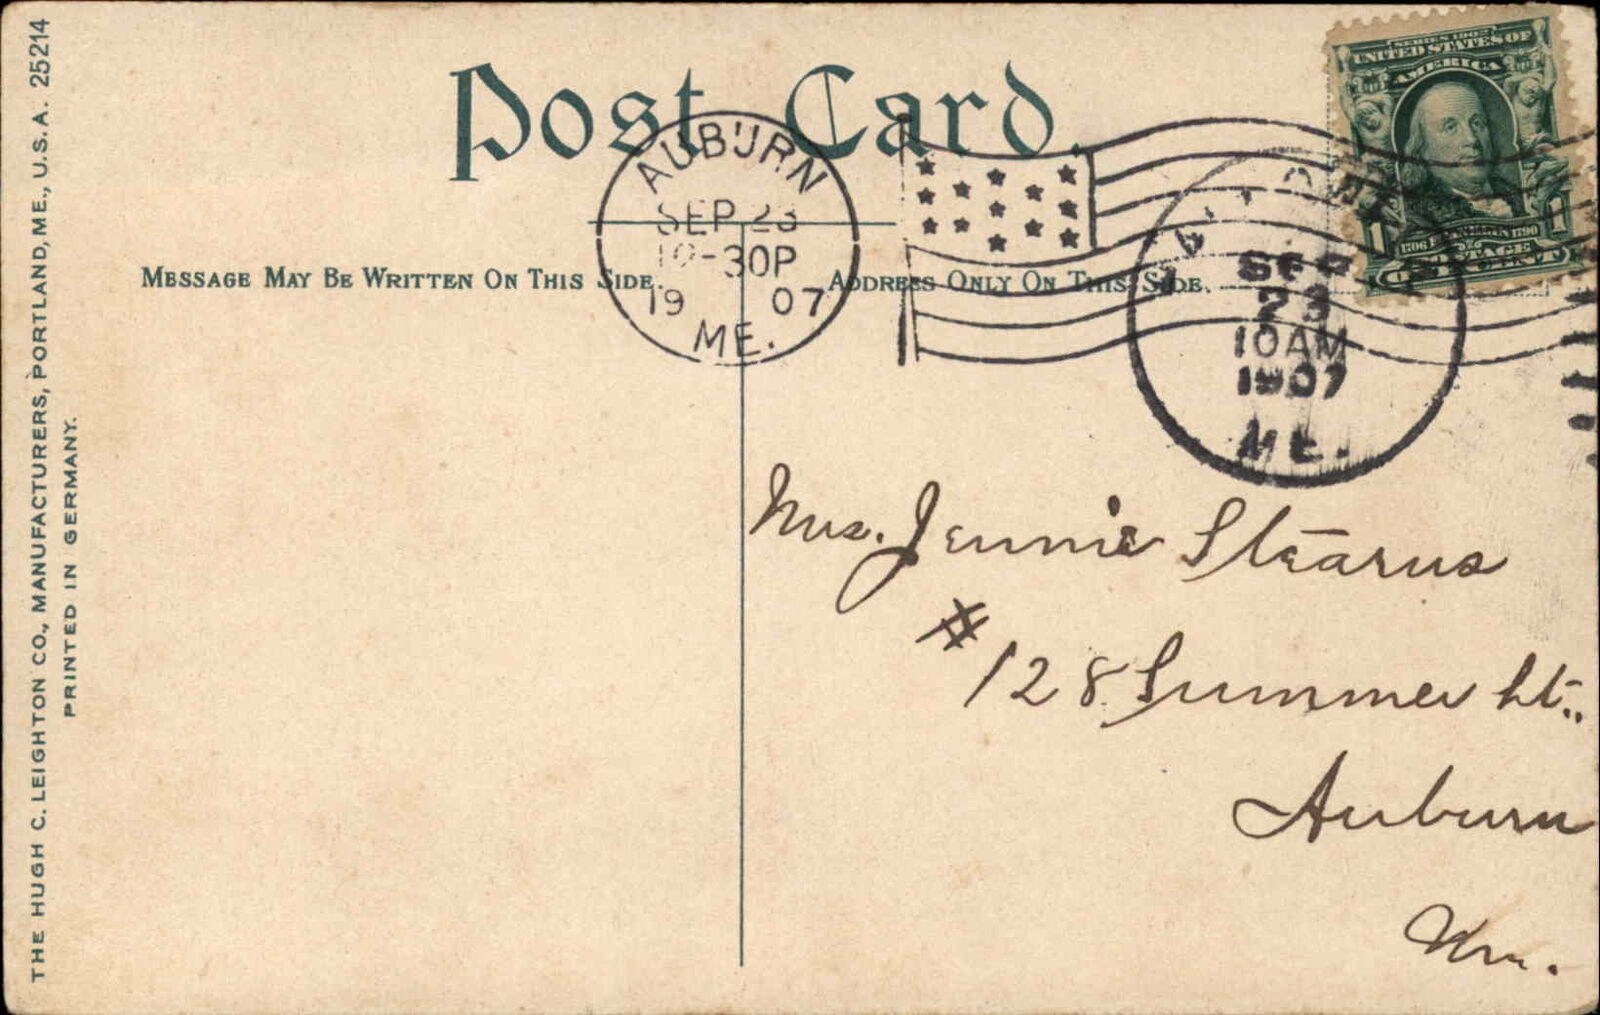 Post Card.
SERIES 1902
UNITED STATES OF
AMERICA
1706 FRANKLIN 1790
POSTAGE
1
1
AUBURN
SEP 23
-30P
19 07
ME.
MESSAGE MAY BE WRITTEN ON THIS SIDE.
ADDRESS ONLY ON THIS SIDE.
SEP
23
10AM
1907
ME.
Mrs. Jennie Stearns
# 128 Summer St.,
Auburn
Me.
THE HUGH C. LEIGHTON CO., MANUFACTURERS, PORTLAND, ME., U.S.A. 25214
PRINTED IN GERMANY.